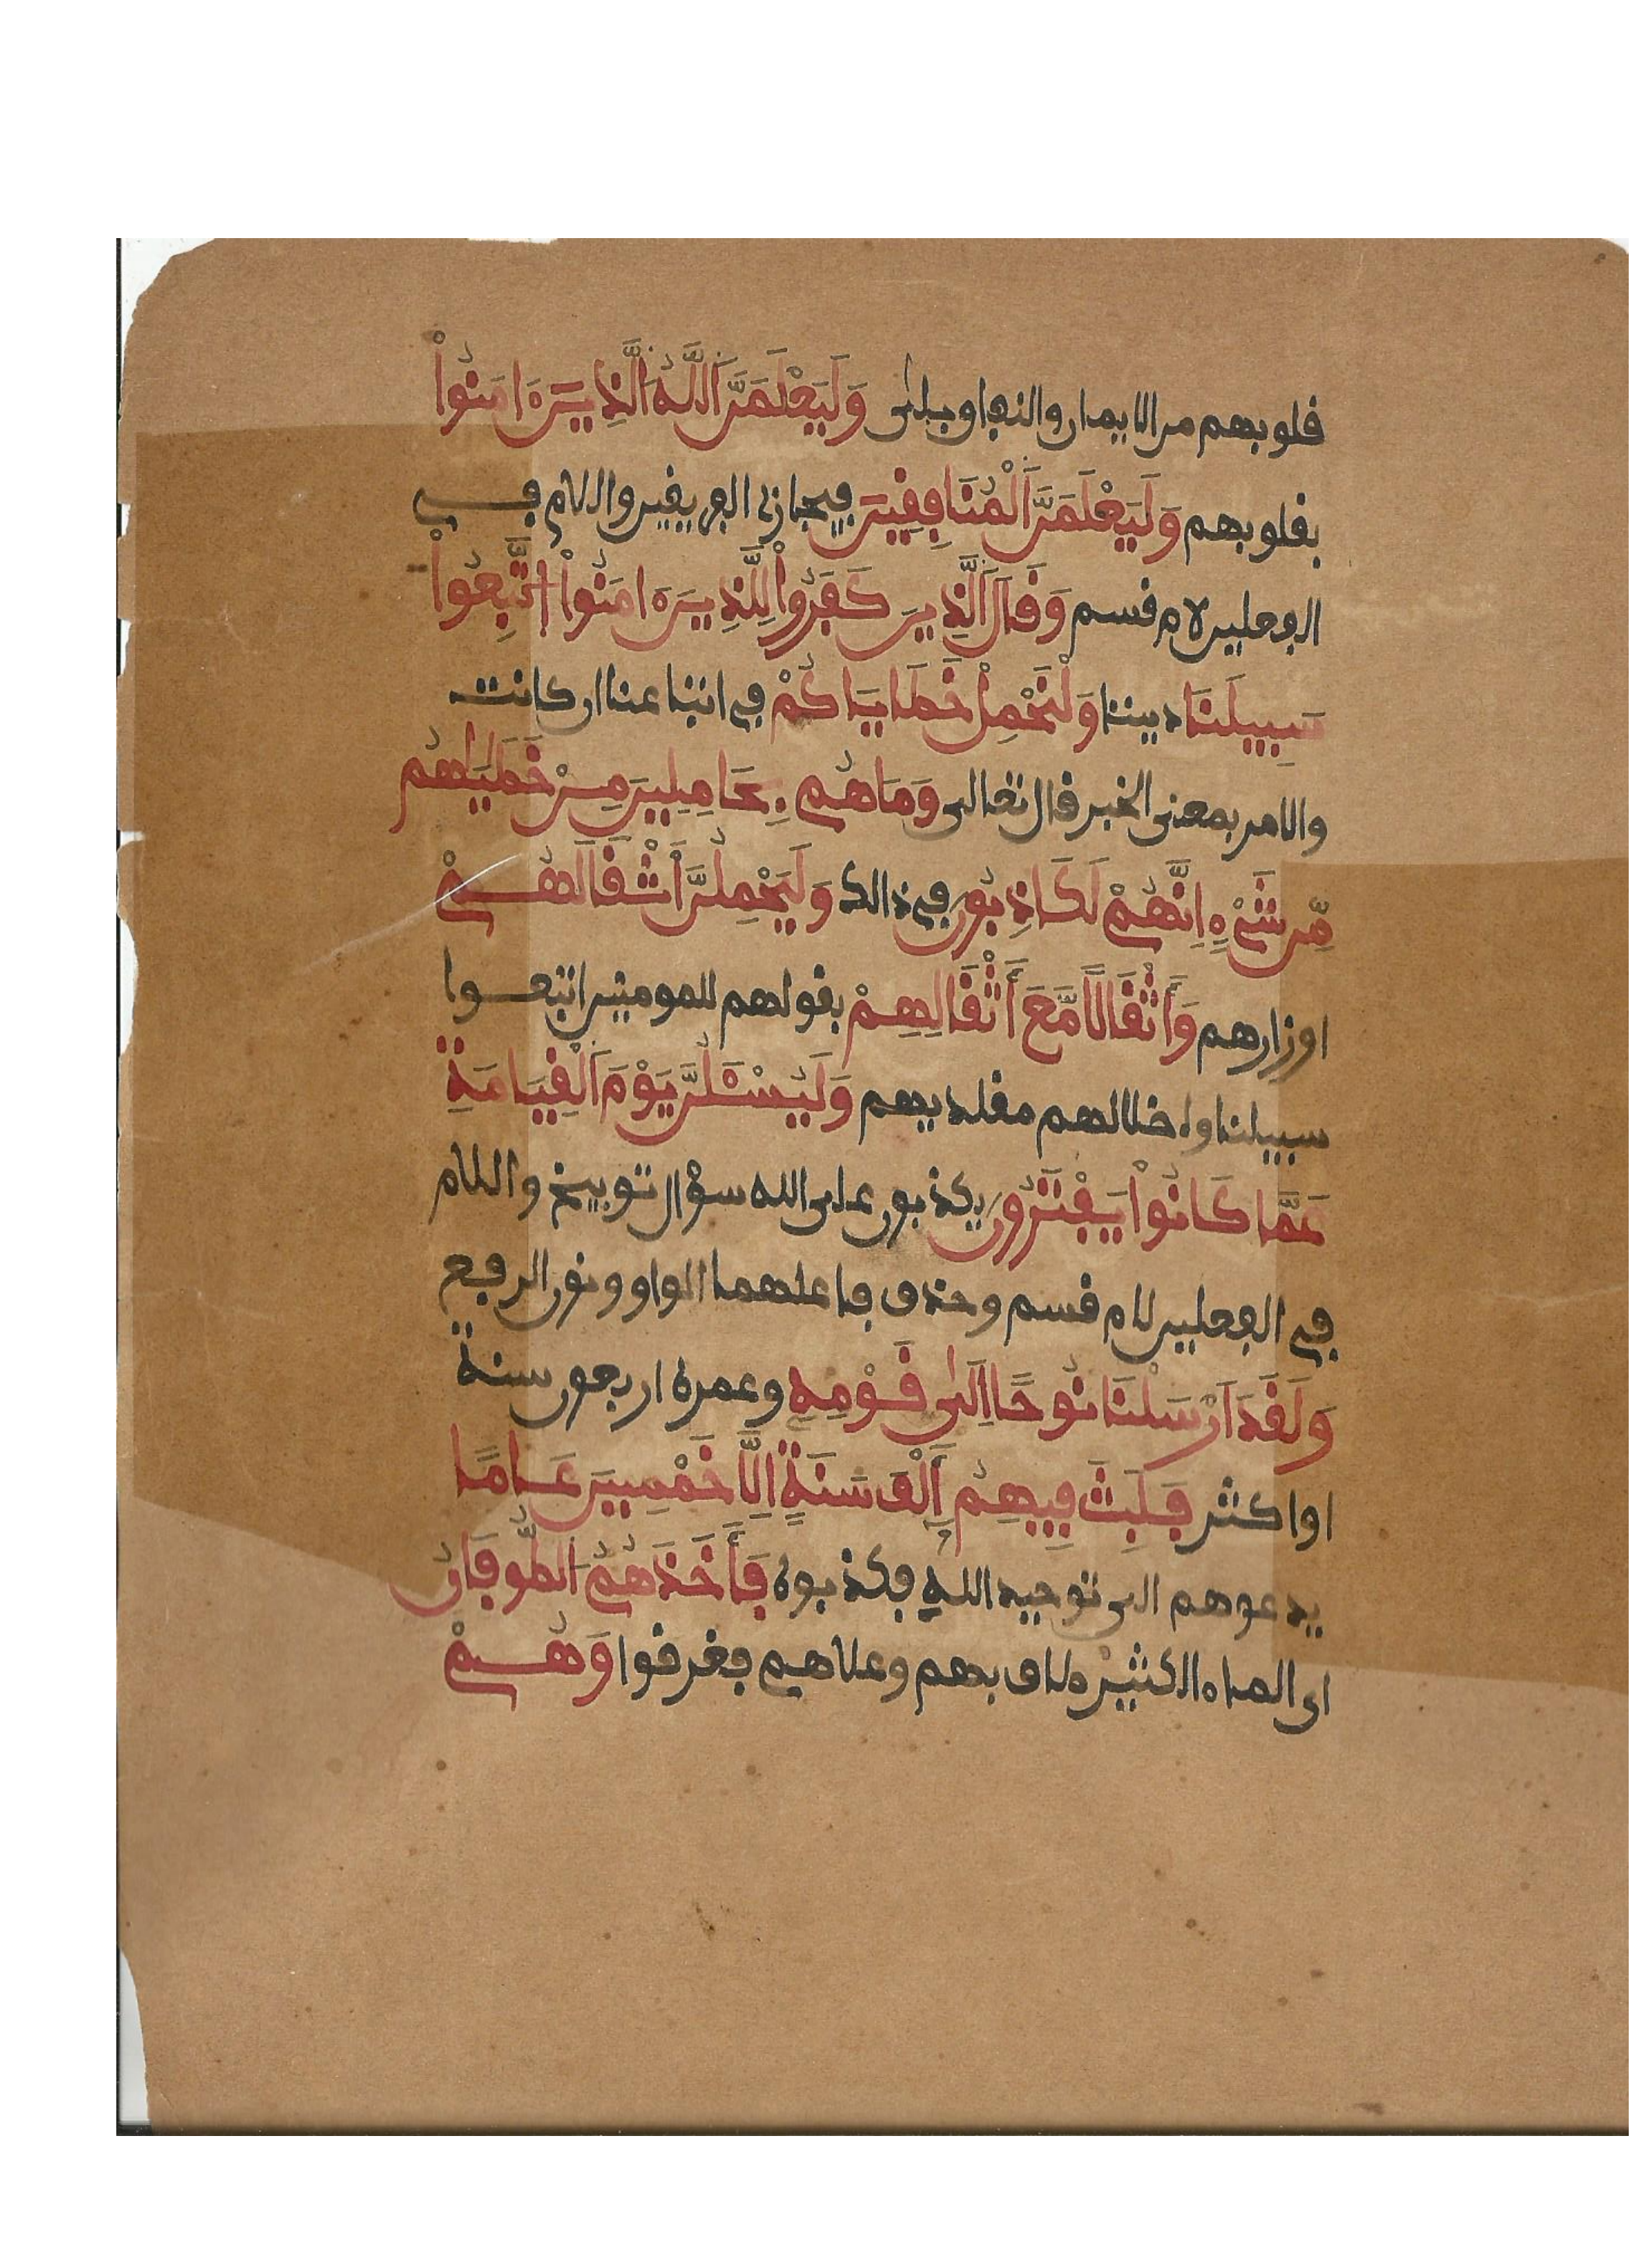 قلوبهم من الايمان والنفاق بلى وَلَيَعْلَمَنَّ اَللَّهُ اُلَّذِينَ ءَامَنُواْ
بقلوبهم وَلَيَعْلَمَنَّ اَلْمُنَافِقِينَ فيجازي الفريقين واللام في
الفعلين لام قسم وَقَالَ اَلَّذِينَ كَفَرُواْ لِلَّذِينَ ءَامَنُواْ اُتَّبِعُواْ
سَبِيلَنَا ديننا وَلْنَحْمِلْ خَطَايَاكُمْ في اتبناعنا ان كانت
والامر بمعنى الخبر قال تعالى وَمَا هُم بِحَامِلِينَ مِنْ خَطَايَاهُم
مِّن شَيْءٍ اِنَّهُمْ لَكَاذِبُونَ في ذالك وَلَيَحْمِلُنَّ أَثْقَالَهُمْ
اوزارهم وَأَثْقَالًا مَّعَ أَثْقَالِهِمْ بقولهم للمومنين اتبعوا
سبيلنا واضلالهم مقلديهم وَلَيُسْـَٔلُنَّ يَوْمَ اَلْقِيَامَةِ
عَمَّا كَانُواْ يَفْتَرُونَ يكذبون على الله سؤال توبيخ واللام
في الفعلين لام قسم وحذف فاعلهما الواو ونون الرفع
وَلَقَدَ اَرْسَلْنَا نُوحًا اِلَىٰ قَوْمِهِ وعمره اربعون سنة
او اكثر فَلَبِثَ فِيهِمُ أَلْفَ سَنَةٍ اِلَّا خَمْسِينَ عَامًا
يدعوهم الى توحيد الله فكذبوه فَأَخَذَهُمُ اَلطُّوفَانُ
اي الماء الكثير طاف بهم وعلاهم فغرقوا وَهُمْ